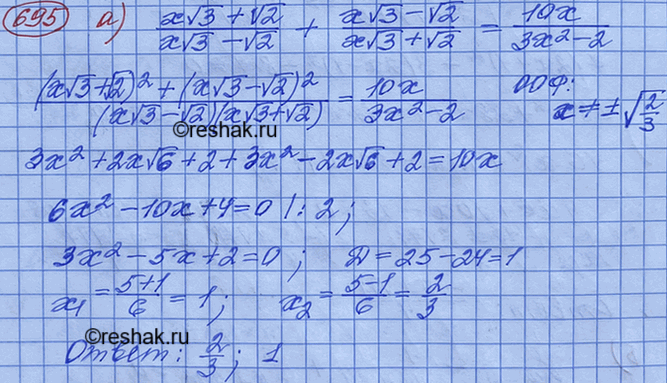 695 а) (x√3 + √2)/(x√3 − √2) + (x√3 − √2)/(x√3 + √2) = 10x/(3x² − 2)
((x√3 + √2)² + (x√3 − √2)²)/((x√3 − √2)(x√3 + √2)) = 10x/(3x² − 2) ООФ:
x ≠ ±√(2/3)
©reshak.ru
3x² + 2x√6 + 2 + 3x² − 2x√6 + 2 = 10x
6x² − 10x + 4 = 0 |: 2;
3x² − 5x + 2 = 0; Д = 25 − 24 = 1
x₁ = (5+1)/6 = 1; x₂ = (5−1)/6 = 2/3
©reshak.ru
Ответ: 2/3; 1